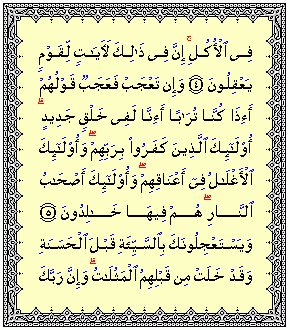 فِى ٱلْأُكُلِ ۚ إِنَّ فِى ذَٰلِكَ لَءَايَـٰتٍ لِّقَوْمٍ
يَعْقِلُونَ ﴿٤﴾ وَإِن تَعْجَبْ فَعَجَبٌ قَوْلُهُمْ
أَءِذَا كُنَّا تُرَٰبًا أَءِنَّا لَفِى خَلْقٍ جَدِيدٍ ۗ
أُو۟لَـٰٓئِكَ ٱلَّذِينَ كَفَرُوا۟ بِرَبِّهِمْ ۖ وَأُو۟لَـٰٓئِكَ
ٱلْأَغْلَـٰلُ فِىٓ أَعْنَاقِهِمْ ۖ وَأُو۟لَـٰٓئِكَ أَصْحَـٰبُ
ٱلنَّارِ ۖ هُمْ فِيهَا خَـٰلِدُونَ ﴿٥﴾
وَيَسْتَعْجِلُونَكَ بِٱلسَّيِّئَةِ قَبْلَ ٱلْحَسَنَةِ
وَقَدْ خَلَتْ مِن قَبْلِهِمُ ٱلْمَثُلَـٰتُ ۗ وَإِنَّ رَبَّكَ